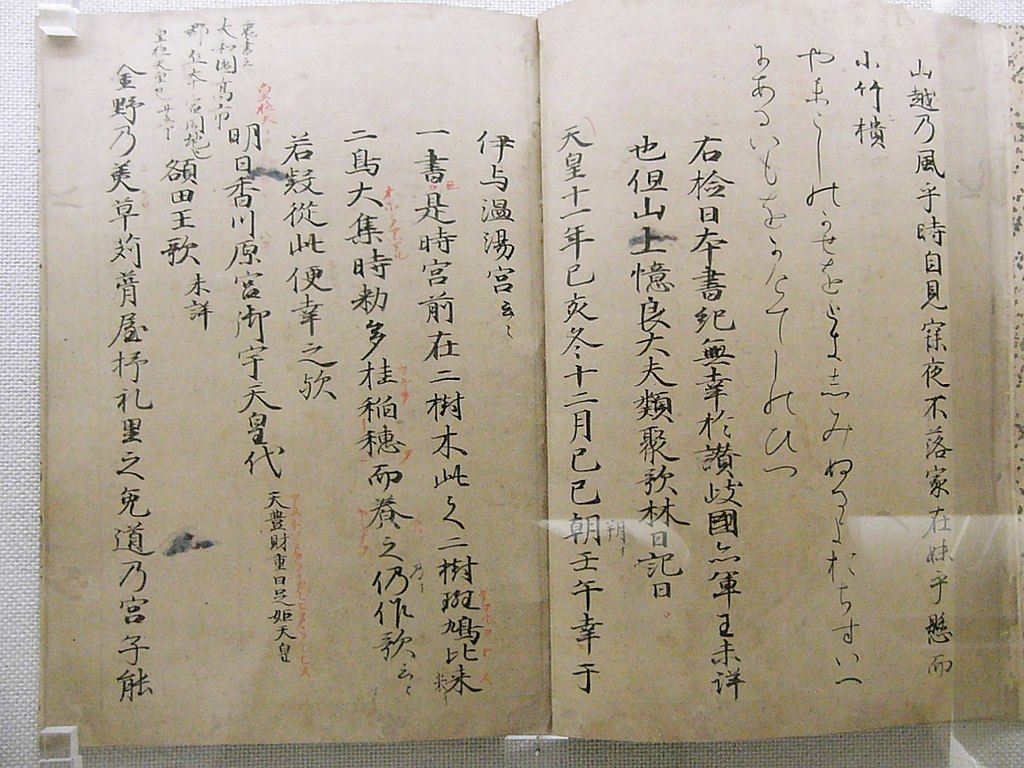 山越乃風乎時自見寐夜不落家在妹乎懸而
小竹樻
やまこしのかせをときしみぬるよおちすいへ
にあるいもをかけてしのひつ
右檢日本書紀無幸於讃岐國亦軍王未詳
也但山上憶良大夫類聚歌林曰記曰
天皇十一年己亥冬十二月己巳朝壬午幸于
朔
伊与温湯宮云々
一書是時宮前在二樹木此之二樹斑鳩比来
米
二鳥大集時勅多桂稲穂而養之仍作歌云々
乃
若疑從此便幸之歟
明日香川原宮御宇天皇代
天豊財重日足姫天皇
皇極天
大和國高市
額田王歌
未詳
金野乃美草苅葺屋杼礼里之兔道乃宮子能